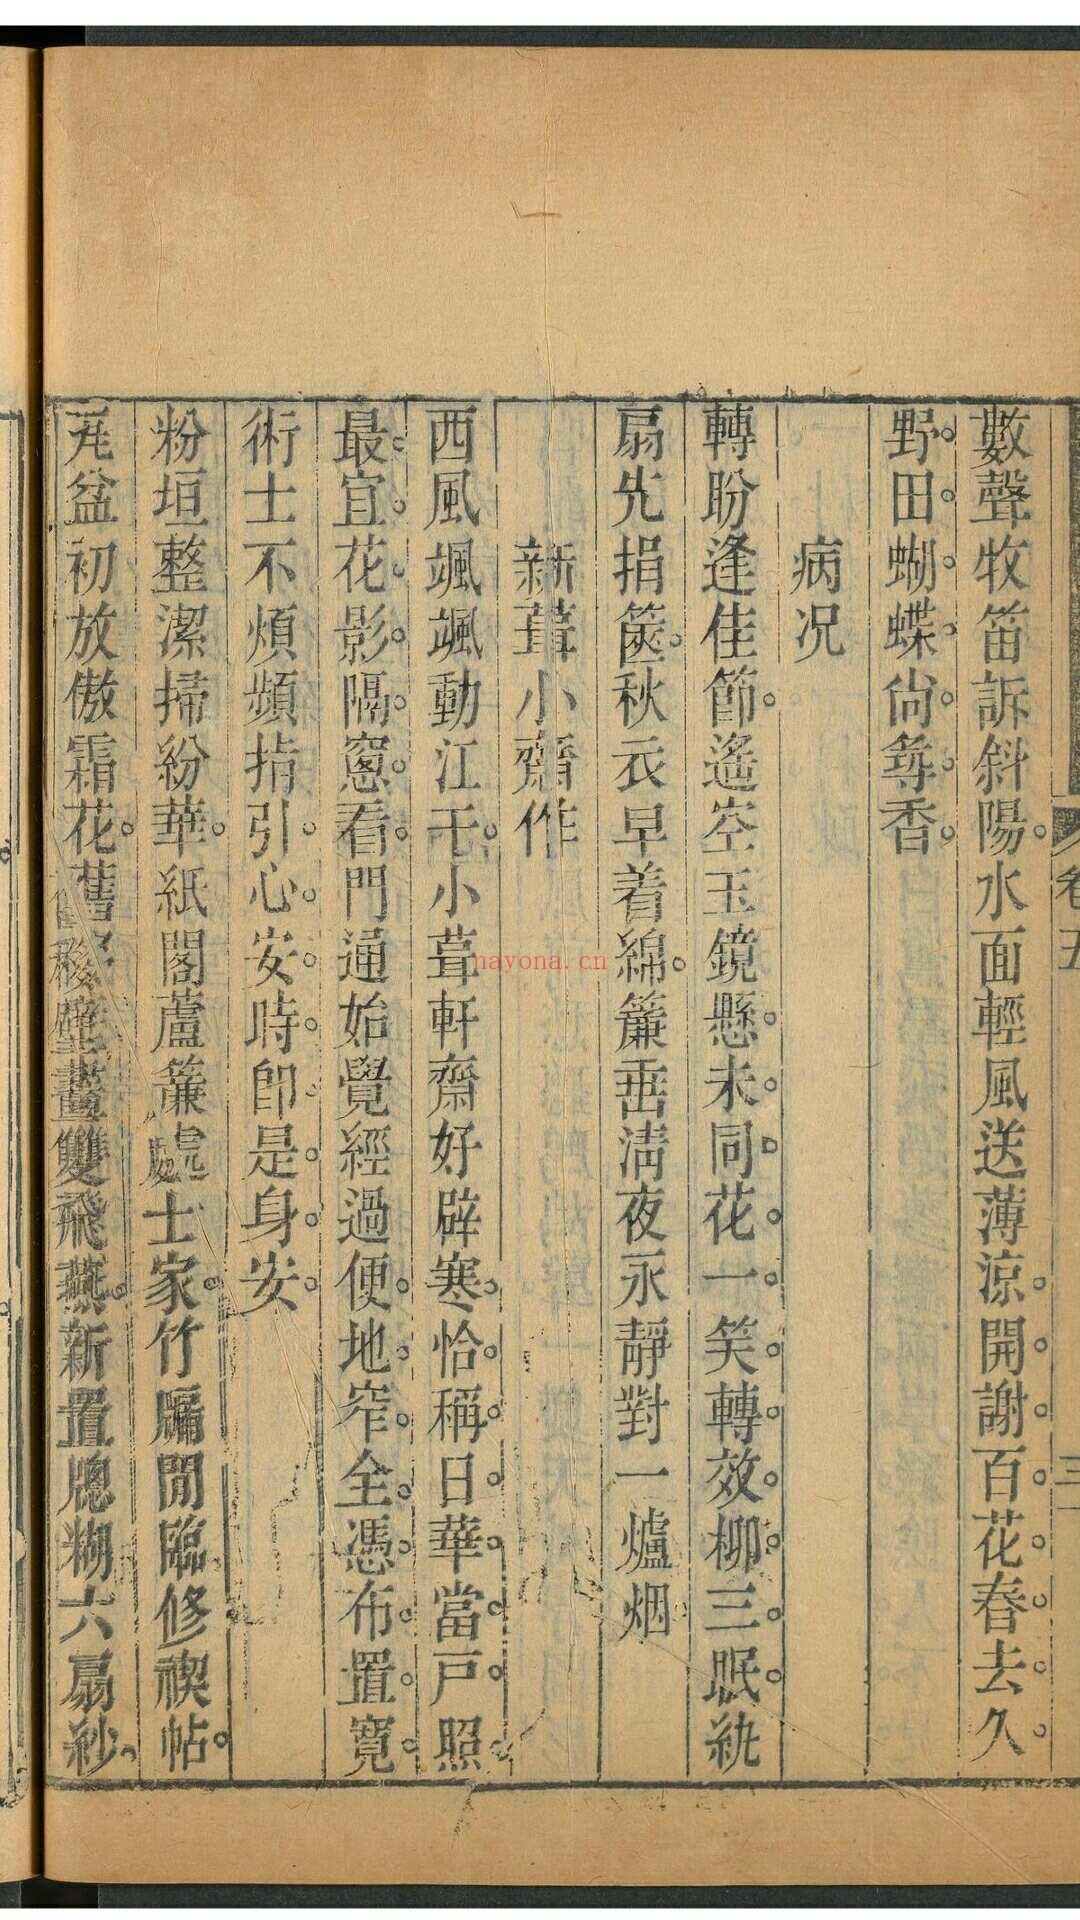 卷五
三十
數聲牧笛訴斜陽水面輕風送薄涼開謝百花春去久
野田蝴蝶尙尋香
病况
轉盼逢佳節遙空玉鏡懸未同花一笑轉效柳三眠紈
扇先捐篋秋衣早着綿簾垂淸夜永靜對一爐烟
新葺小齋作
西風颯颯動江干小葺軒齋好辟寒恰稱日華當戸照
最宜花影隔窻看門通始覺經過便地窄全憑布置寬
術士不煩頻指引心安時卽是身安
粉垣整潔掃紛華紙閣蘆簾處士家竹牖閒臨修禊帖
瓦盆初放傲霜花舊移壁畫雙飛燕新置牕糊六扇紗
nayona.cn